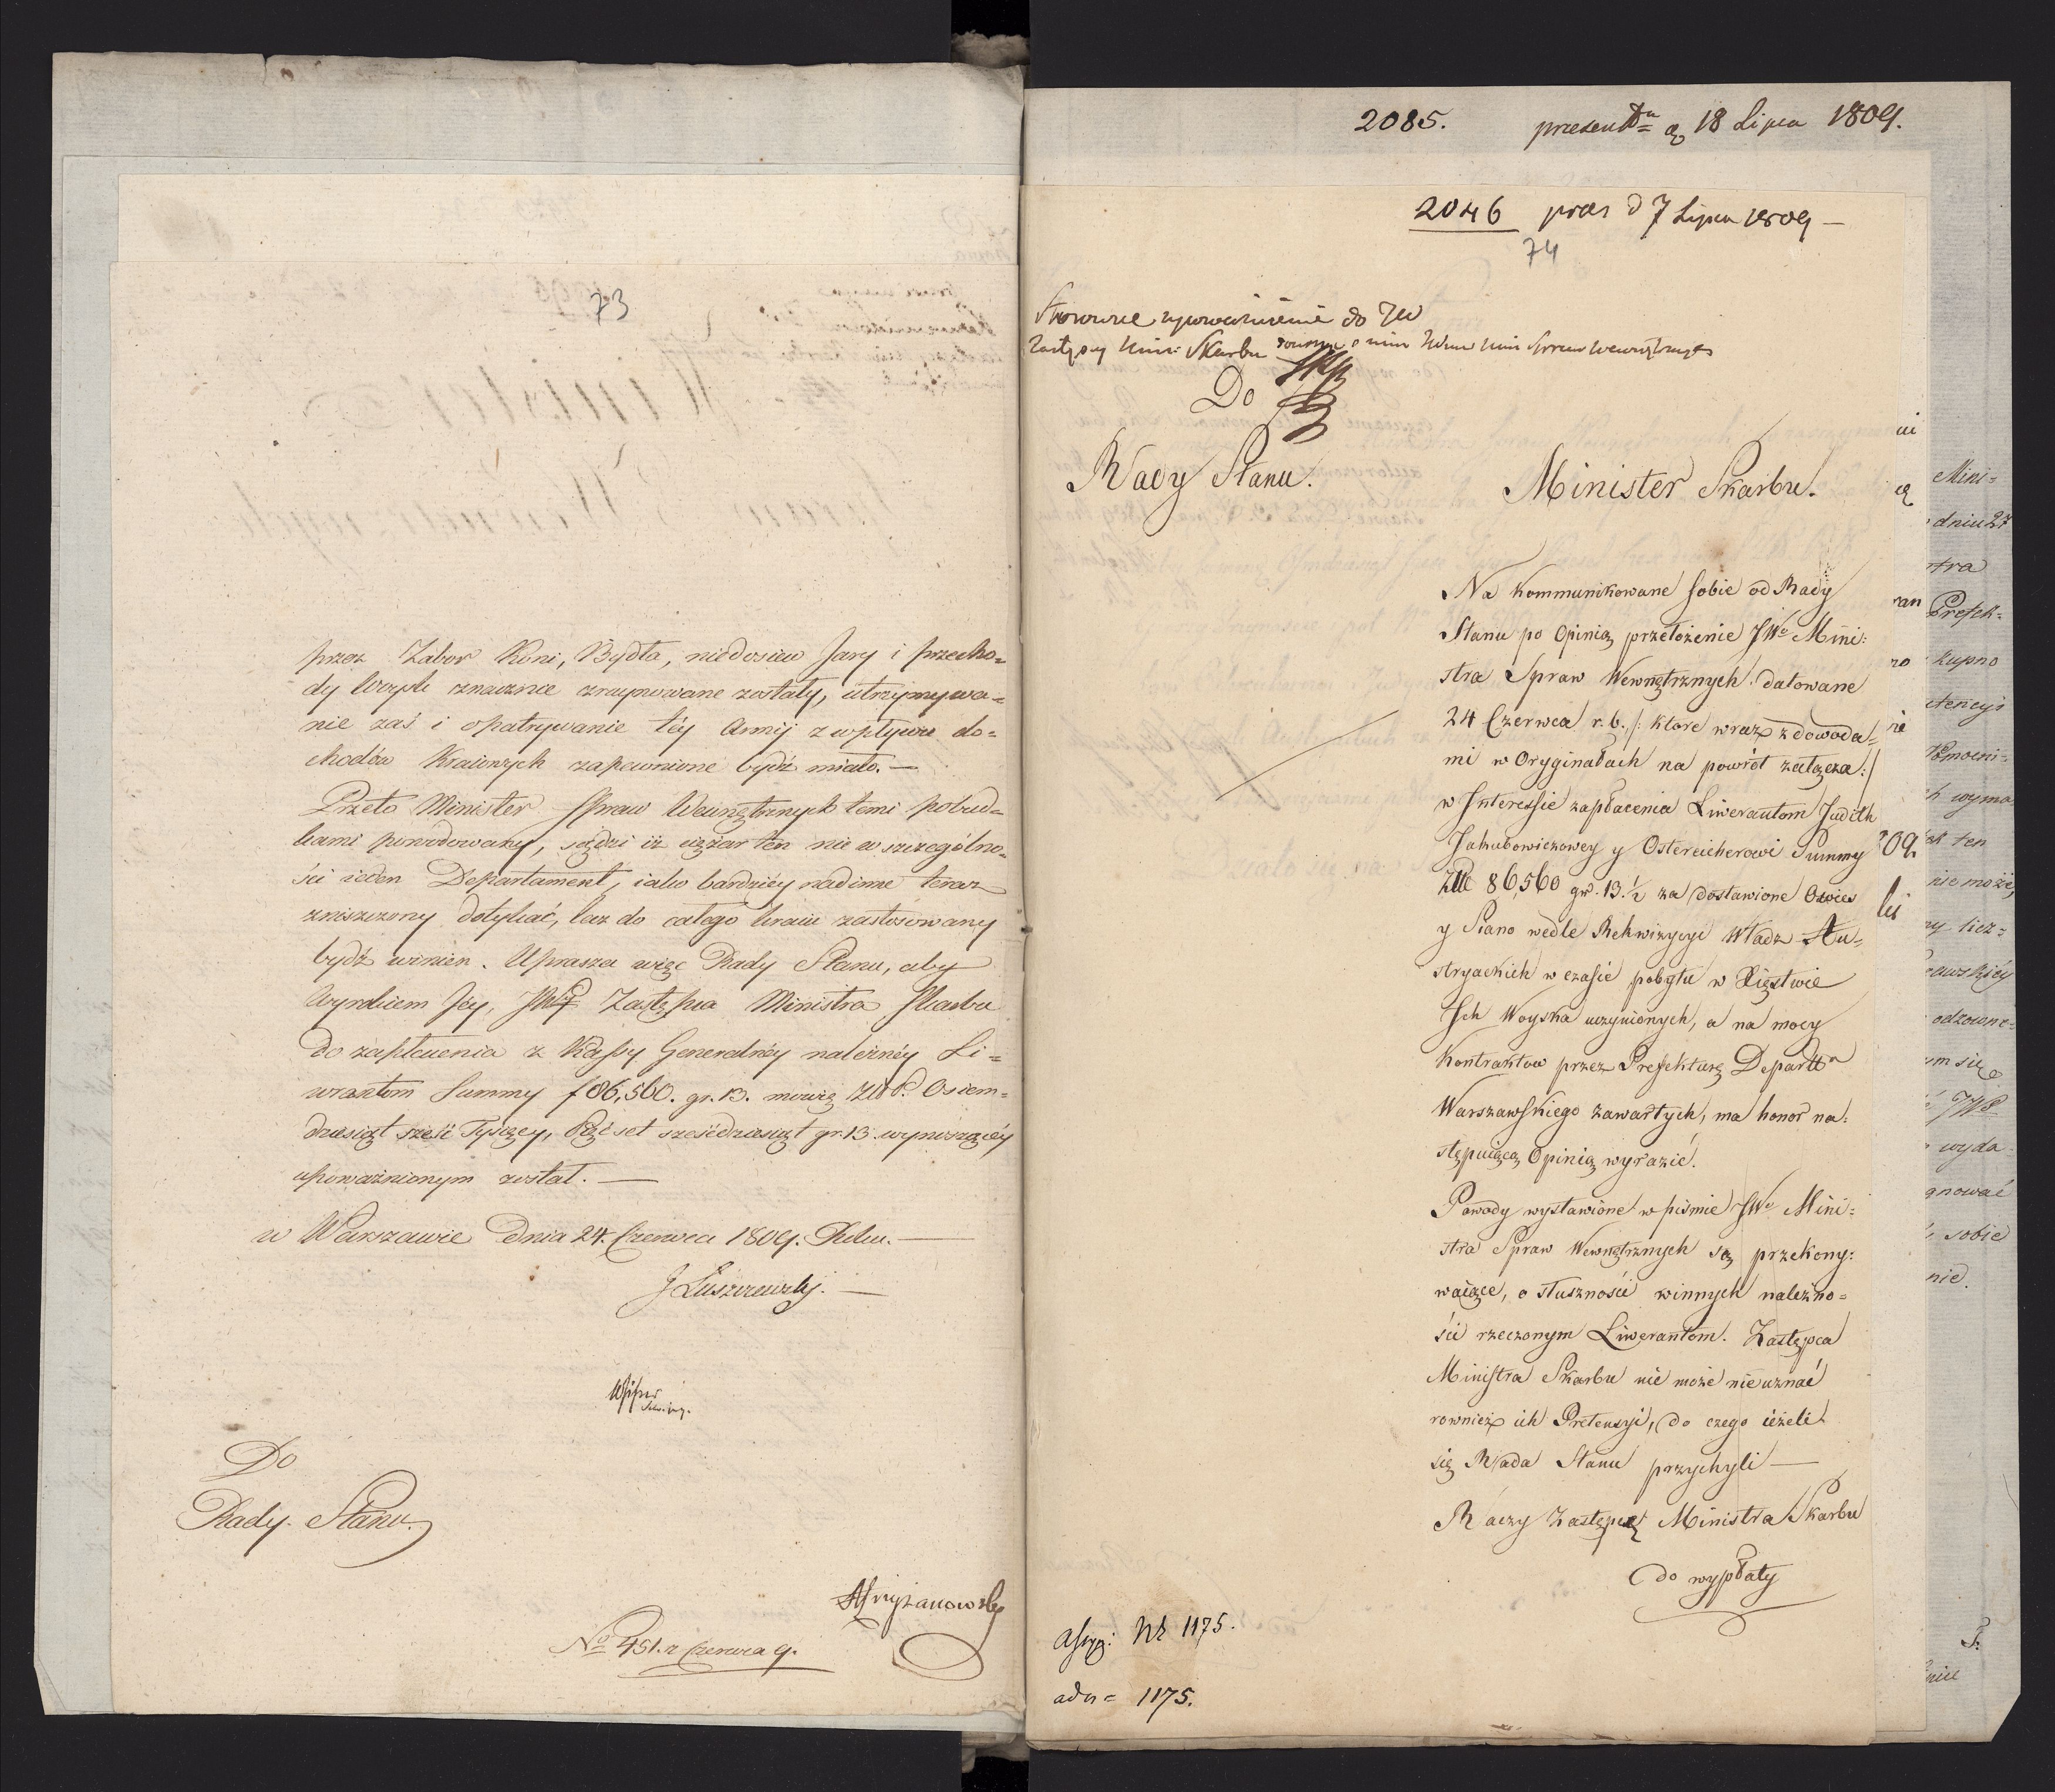 73
przez Zabor Koni, Bydła, niedosiew Jary i przecho=
dy Woysk znacznie zruynowane zostały, utrzymywa=
nie zaś i opatrywanie téy Armij z wpływu do=
chodów Kraiowych zapewnione bydź miało. —
Przeto Minister Spraw Wewnętrznych temi pobud=
kami powodowany, sądzi iż ciężar ten nie w szczególno=
ści ieden Departament, iako bardziéy nad inne teraz
zniszczony dotykać, lecz do całego kraiu zastosowany
bydź winien. Uprasza więc Rady Stanu, aby
wyrokiem Jéy, JWP Zastępca Ministra Skarbu
do zapłacenia z Kassy Generalnéy należnéy Li=
werantom Summy f 86,560. gr. 13. mówię Złł P. Osiem=
dziesiąt sześć Tysięcy, Pięćset sześćdziesiąt gr. 13. wynoszącéy
upoważnionym został. —
w Warszawie Dnia 24. Czerwca 1809. Roku. —
J Łuszczewsky. —
Do
Rady Stanu.
AKrzyżanowsky
No 451. z Czerwca 9.
2085. presentn d 18 Lipca 1809.
2046 præs d 7 Lipca 1809 —
74
Stosowne upoważnienie do JW
Zastępcy Mini: Skarbu
Do
Rady Stanu.
Minister Skarbu.
Na Kommunikowane sobie od Rady
Stanu po Opinią przełożenie JWo Mini:
stra Spraw Wewnętrznych datowane
24 Czerwca r. b. /: które wraz z dowoda=
mi w Oryginałach na powrót załącza :/
w Interessie zapłacenia Liwerantom Judith
Jakubowiczowey y Ostereicherowi Summy
Złł 86,560 gr. 13. ½ za dostawione Owies
y Siano wedle Rekwizycyi Władz Au=
stryackich w czasie pobytu w Xięstwie
Ich Woyska uczynionych, a na mocy
Kontraktow przez Prefekturę Departtu
Warszawskiego zawartych, ma honor na:
stępuiącą Opinią wyrazić.
Powody wystawione w piśmie JWo Mini:
stra Spraw Wewnętrznych są przekony:
waiące, o słuszności winnych należno=
ści rzeczonym Liwerantom. Zastępca
Ministra Skarbu nie może nieuznać
rownież ich Pretensyi, do czego ieżeli
się Rada Stanu przychyli —
Raczy Zastępcę Ministra Skarbu
do wypłaty
Assyg: Nr 1175.
adn = 1175.
Mini=
dniu 27
stra
Prefek=
kupno
ten
nie może,
odzowne=
JWP
wyda
sobie
nie.